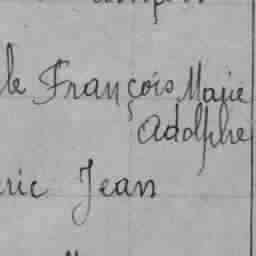 le François Marie
Adolphe
ric Jean